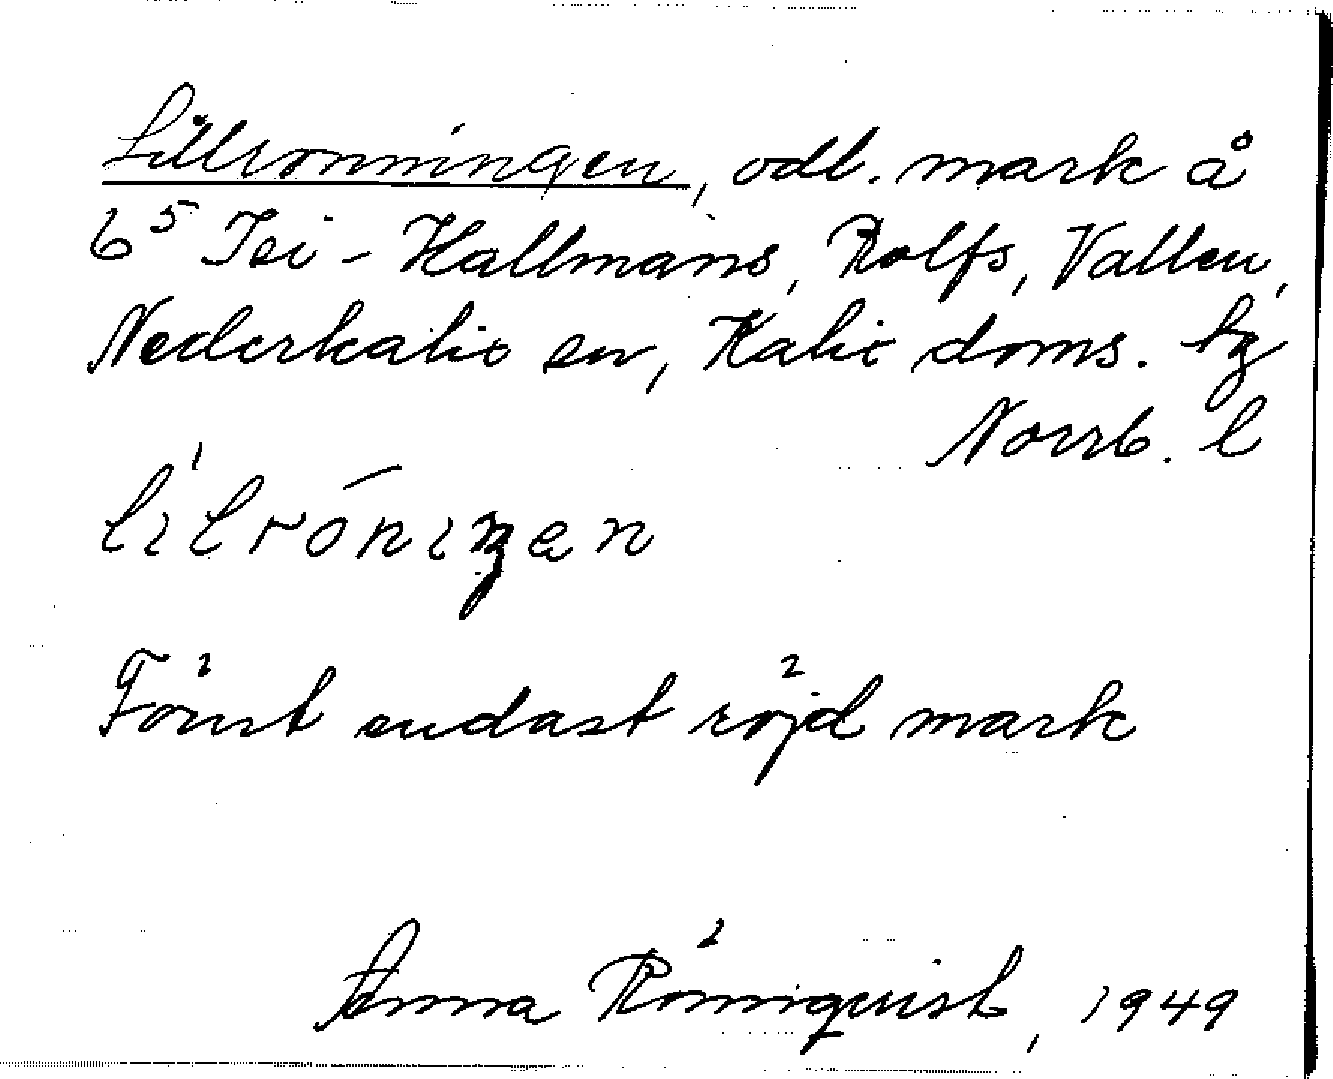 Lillrönningen, odl. mark å
6⁵ Tei - Hallmans, Rolfs, Vallen,
Nederkalix sn, Kalix doms. tg
Norrb. l
lilrōningen
Först endast röjd mark
Anna Rönnquist, 1949